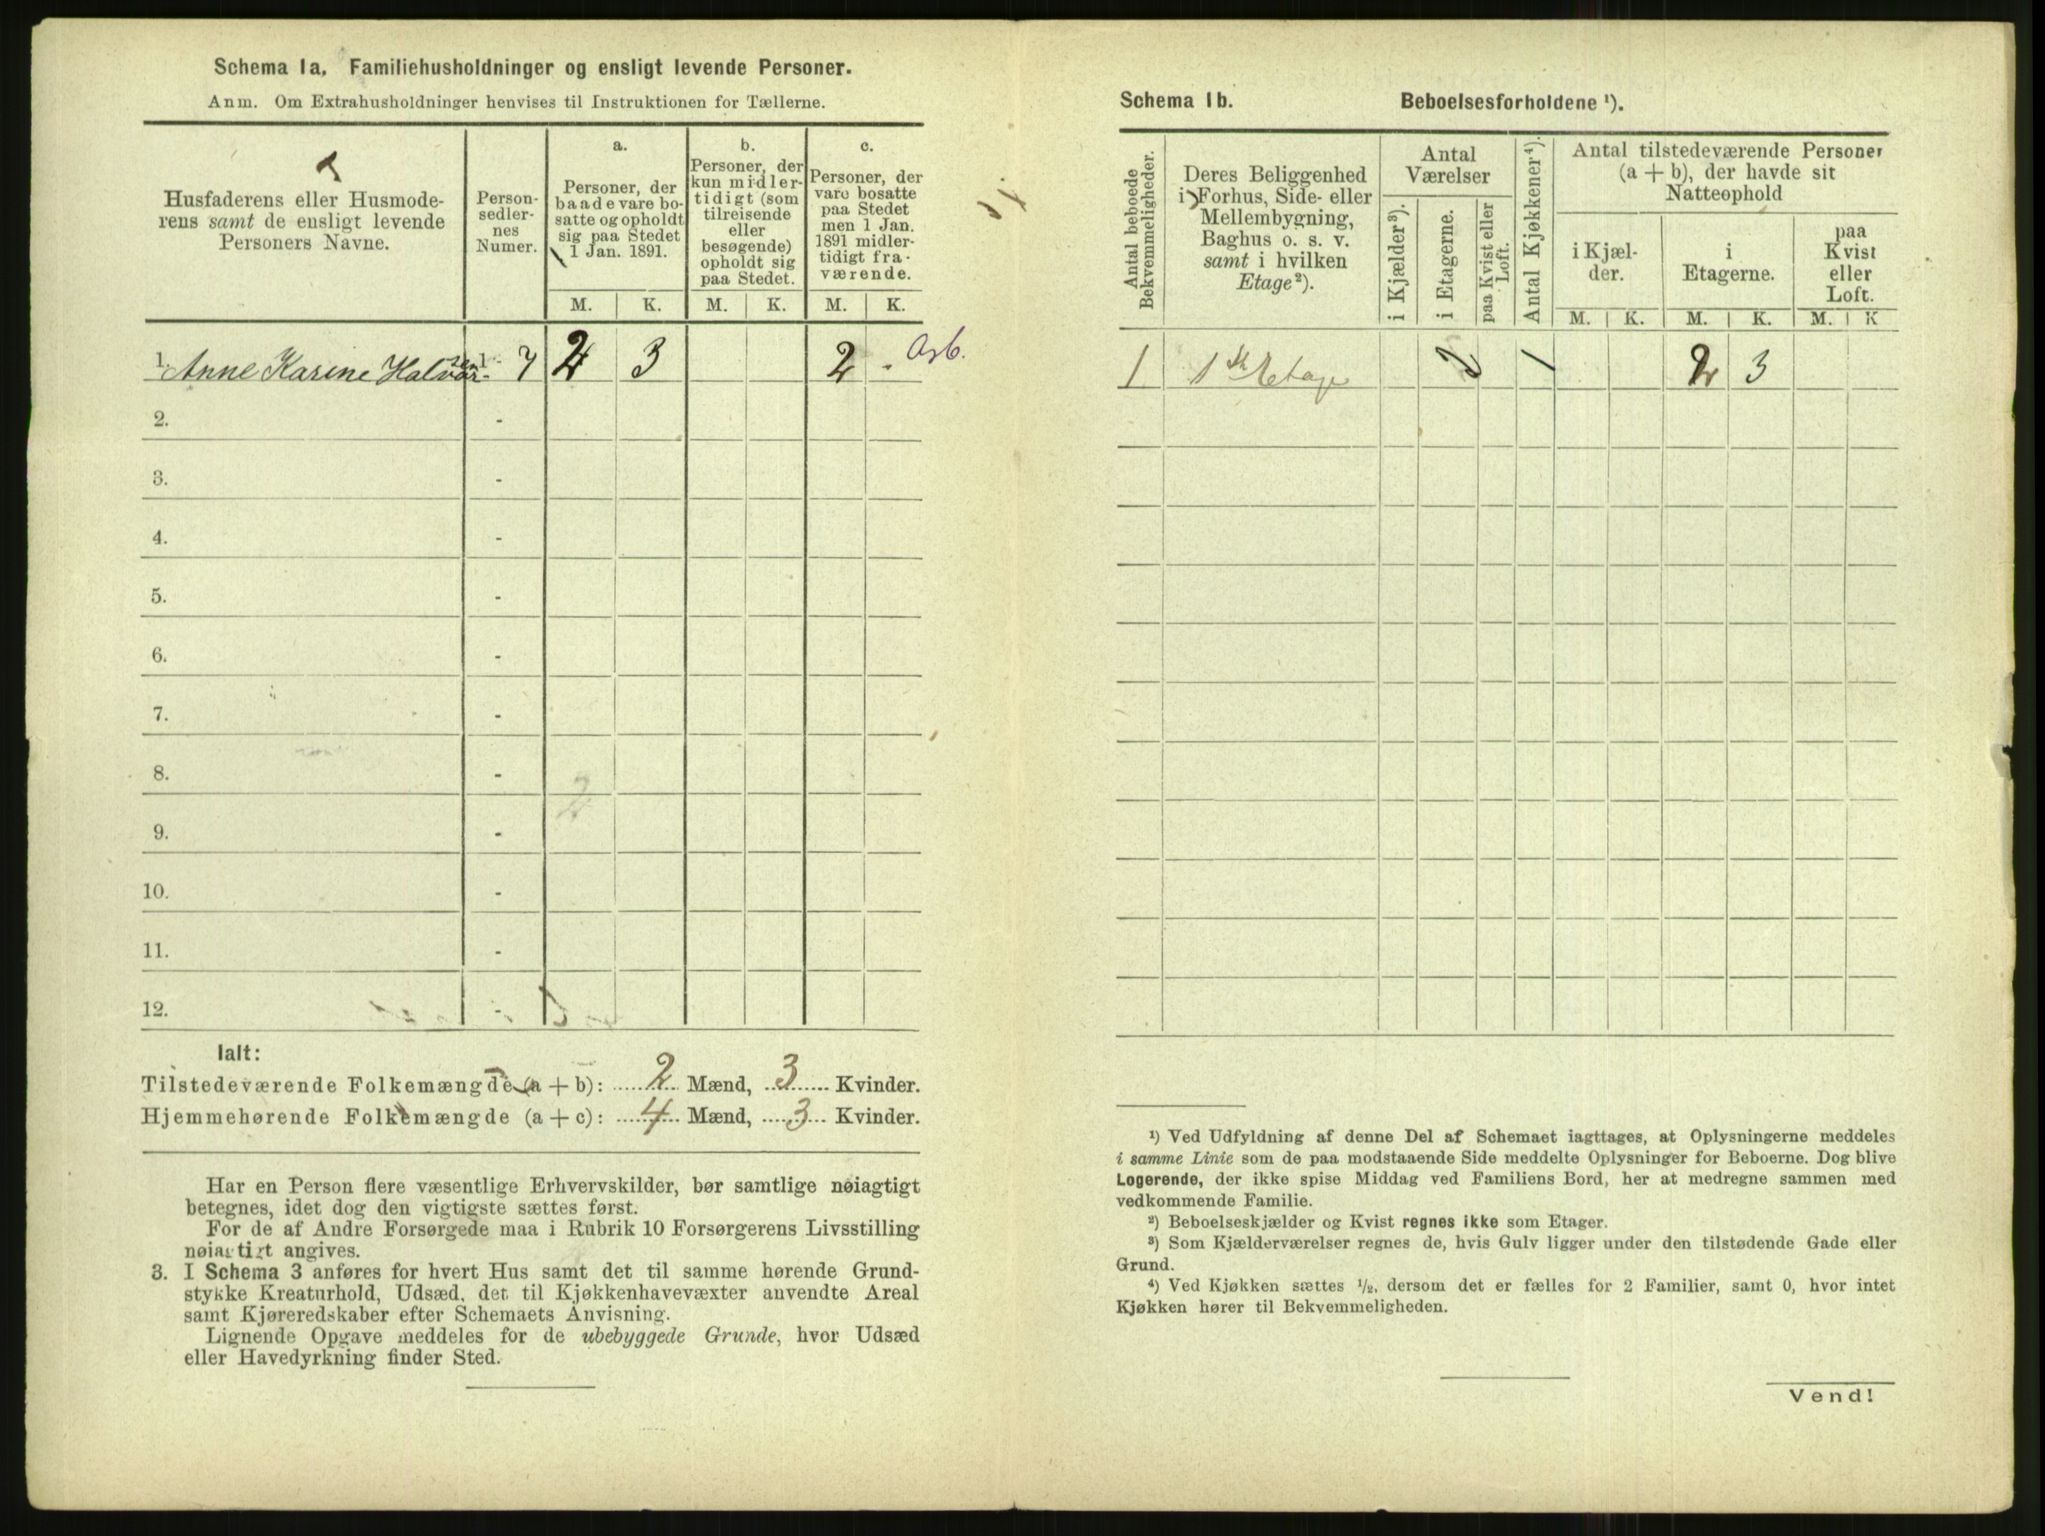 Schema 1a. Familiehusholdninger og ensligt levende Personer.
Anm. Om Extrahusholdninger henvises til Instruktionen for Tællerne.
Husfaderens eller Husmode-
rens samt de ensligt levende
Personers Navne.
Person-
sedler-
nes
Numer.
a.
Personer, der
baade vare bo-
satte og opholdt
sig paa Stedet
1 Jan. 1891.
b.
Personer, der
kun midler-
tidigt (som
tilreisende
eller
besøgende)
opholdt sig
paa Stedet.
c.
Personer, der
vare bosatte
paa Stedet
men 1 Jan.
1891 midler-
tidigt fra-
værende.
M. K. M. K. M. K.
1. Anne Karine Halvorsen 1 - 7 2 3 2 - Arb.
2. -
3. -
4. -
5. -
6. -
7. -
8. -
9. -
10. -
11. -
12. -
Ialt:
Tilstedeværende Folkemængde (a + b): 2 Mænd, 3 Kvinder.
Hjemmehørende Folkemængde (a + c): 4 Mænd, 3 Kvinder.
Har en Person flere væsentlige Erhvervskilder, bør samtlige nøiagtigt
betegnes, idet dog den vigtigste sættes først.
For de af Andre Forsørgede maa i Rubrik 10 Forsørgerens Livsstilling
nøiagtigt angives.
3. I Schema 3 anføres for hvert Hus samt det til samme hørende Grund-
stykke Kreaturhold, Udsæd, det til Kjøkkenhavevæxter anvendte Areal
samt Kjøreredskaber efter Schemaets Anvisning.
Lignende Opgave meddeles for de ubebyggede Grunde, hvor Udsæd
eller Havedyrkning finder Sted.
Schema 1b. Beboelsesforholdene ¹).
Antal beboede
Bekvemmeligheder.
Deres Beliggenhed
i Forhus, Side- eller
Mellembygning,
Baghus o. s. v.
samt i hvilken
Etage²).
Antal
Værelser
i Kjælder³).
i Etagerne.
paa Kvist eller
Loft.
Antal Kjøkkener⁴).
Antal tilstedeværende Personer
(a + b), der havde sit
Natteophold
i Kjæl-
der.
i
Etagerne.
paa
Kvist
eller
Loft.
M. K. M. K. M. K
1 1ste Etage 2 1 2 3
¹) Ved Udfyldning af denne Del af Schemaet iagttages, at Oplysningerne meddeles
i samme Linie som de paa modstaaende Side meddelte Oplysninger for Beboerne. Dog blive
Logerende, der ikke spise Middag ved Familiens Bord, her at medregne sammen med
vedkommende Familie.
²) Beboelseskjælder og Kvist regnes ikke som Etager.
³) Som Kjælderværelser regnes de, hvis Gulv ligger under den tilstødende Gade eller
Grund.
⁴) Ved Kjøkken sættes ½, dersom det er fælles for 2 Familier, samt 0, hvor intet
Kjøkken hører til Bekvemmeligheden.
Vend!